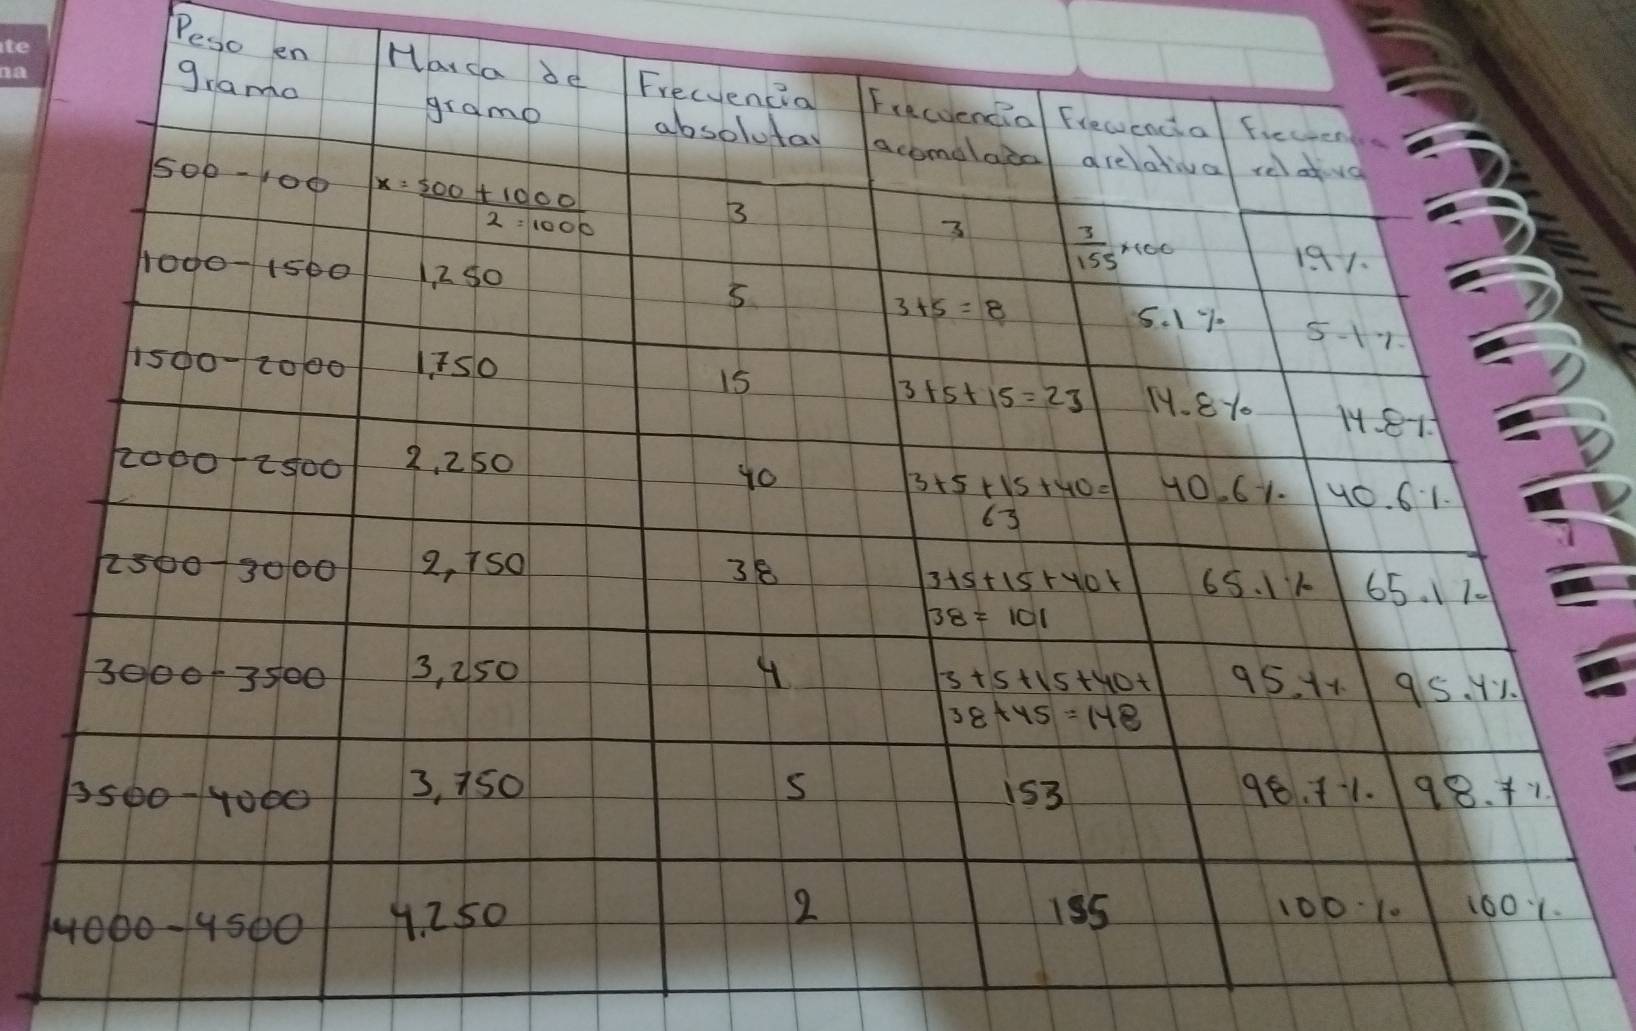 te
na
Peso en gramo
Marca de gramo
Frecuencia absolutar
Frecuencia acomolada
Frewencia arelativa
relativa
500-100
x = 500 + 1000
2 = 1000
3
3
3/155 × 100
1.9%
1000-1500
1,250
5
3+5 = 8
5.1%
5-1%
1500-2000
1,750
15
3+5+15 = 23
14.8%
14.8%
2000-2500
2,250
40
3+5+15+40=
63
40.6%
40.6%
2500-3000
2,750
38
3+5+15+40+
38 = 101
65.1%
65.1%
3000-3500
3,250
4
3+5+15+40+
38+45 = 148
95.4%
95.4%
3500-4000
3,750
5
153
98.7%
98.7%
4000-4500
4.250
2
155
100%
100%